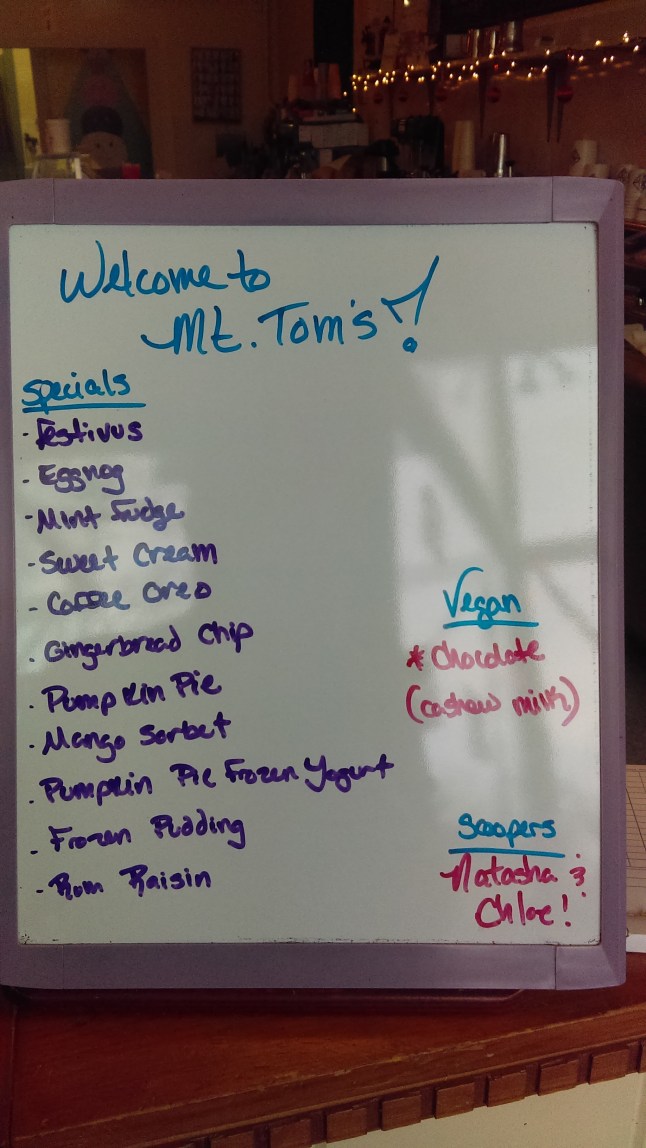 Welcome to
Mt. Tom's!
Specials
- Festivus
- Eggnog
- Mint Fudge
- Sweet Cream
- Coffee Oreo
- Gingerbread Chip
- Pumpkin Pie
- Mango Sorbet
- Pumpkin Pie Frozen Yogurt
- Frozen Pudding
- Rum Raisin
Vegan
* Chocolate
(cashew milk)
Scoopers
Natasha &
Chloe!